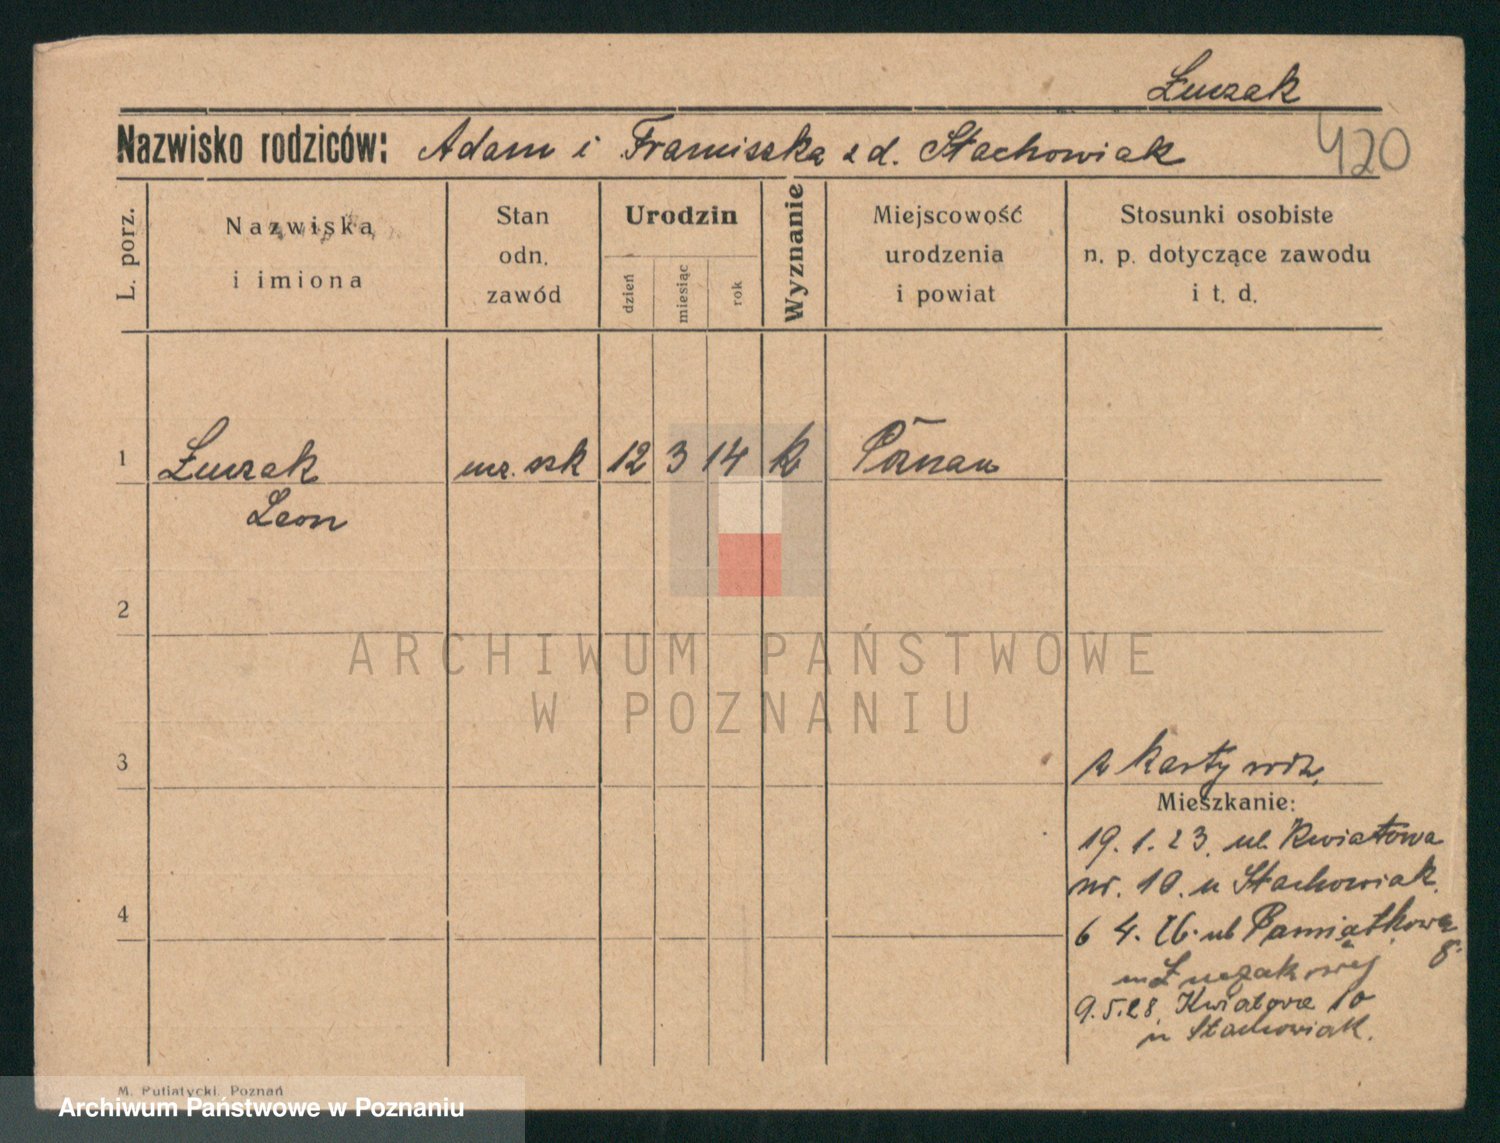 Łuczak
Nazwisko rodziców: Adam i Franciszka z d. Stachowiak
420
L. porz.
Nazwiska
i imiona
Stan
odn.
zawód
Urodzin
dzień
miesiąc
rok
Wyznanie
Miejscowość
urodzenia
i powiat
Stosunki osobiste
n. p. dotyczące zawodu
i t. d.
1 Łuczak ucz. szk 12 3 14 k Poznań
Leon
2
ARCHIWUM PAŃSTWOWE
W POZNANIU
3
z karty rodz.
Mieszkanie:
19. 1. 23. ul. Kwiatowa
nr. 10. u Stachowiak.
4
6 4. 26. ul Pamiątkowa
8.
u Łuczakowej
9.5.28. Kwiatowa 10
u Stachowiak.
M. Putiatycki, Poznań
Archiwum Państwowe w Poznaniu